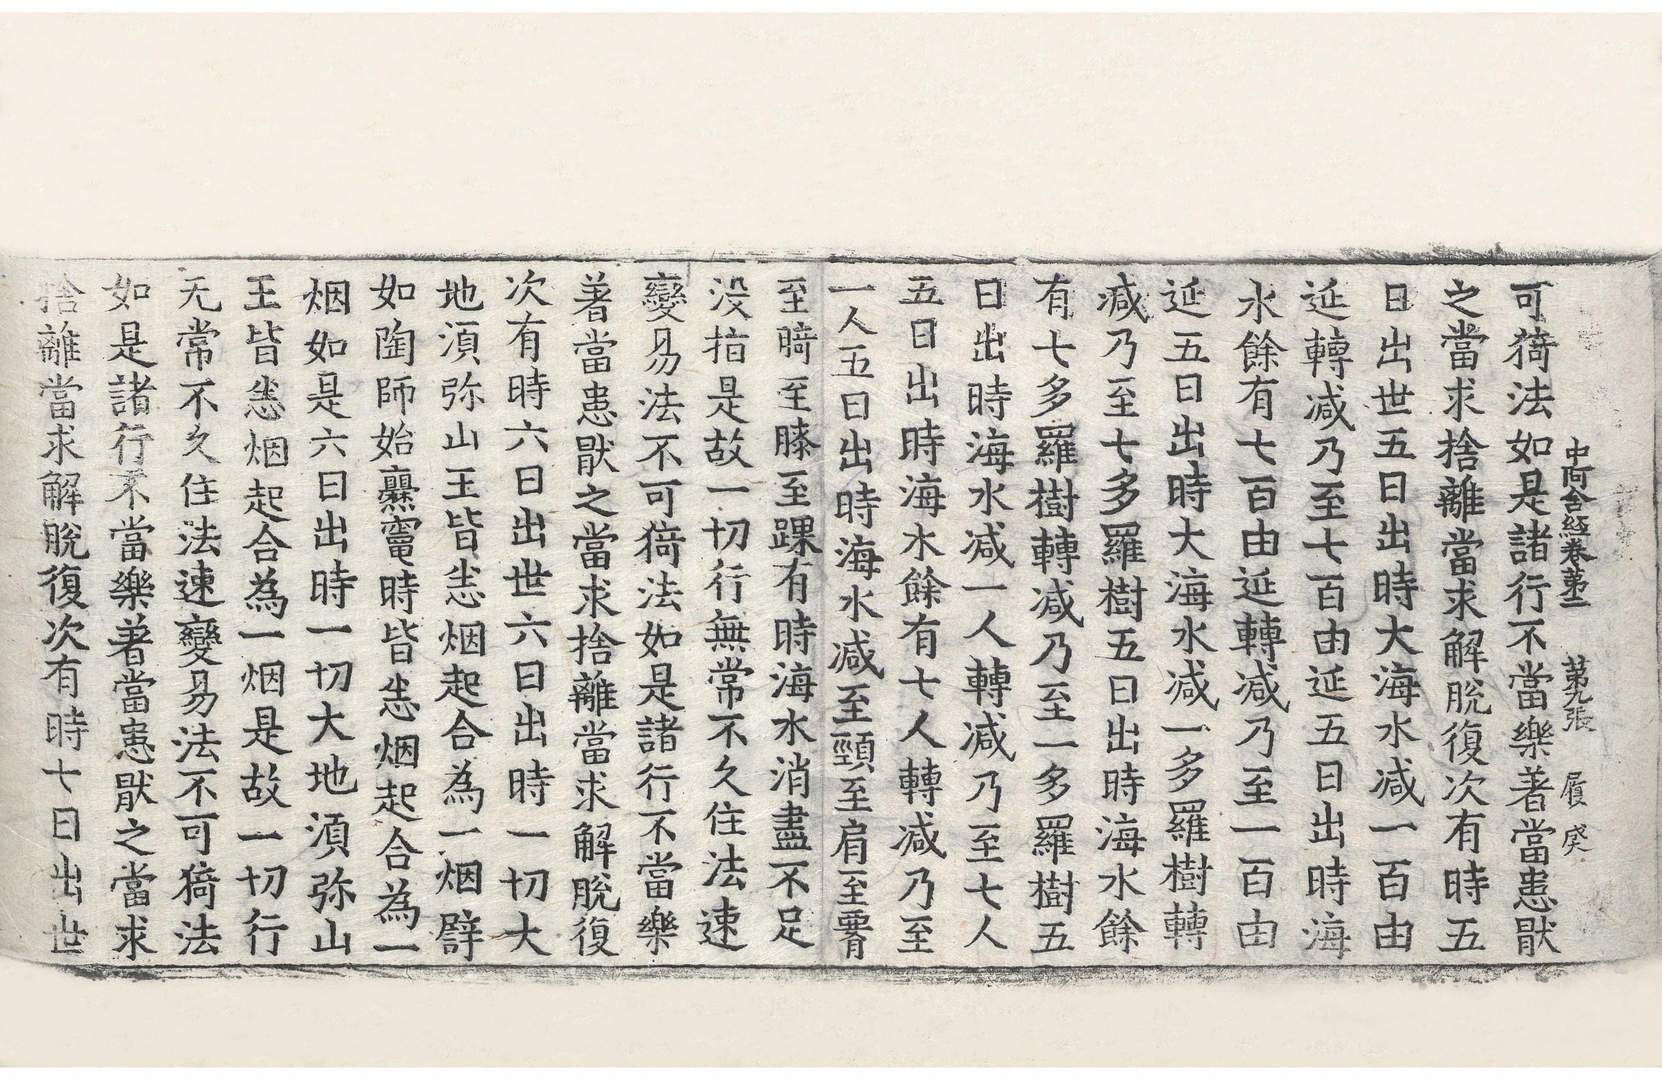 中阿含經卷第二 第九張 履 癸
可猗法如是諸行不當樂著當患猒
之當求捨離當求解脫復次有時五
日出世五日出時大海水減一百由
延轉減乃至七百由延五日出時海
水餘有七百由延轉減乃至一百由
延五日出時大海水減一多羅樹轉
減乃至七多羅樹五日出時海水餘
有七多羅樹轉減乃至一多羅樹五
日出時海水減一人轉減乃至七人
五日出時海水餘有七人轉減乃至
一人五日出時海水減至頸至肩至𦝫
至䠒至膝至踝有時海水消盡不足
没指是故一切行無常不久住法速
變易法不可猗法如是諸行不當樂
著當患猒之當求捨離當求解脫復
次有時六日出世六日出時一切大
地須弥山王皆悉烟起合為一烟譬
如陶師始㸑竈時皆悉烟起合為一
烟如是六日出時一切大地須弥山
王皆悉烟起合為一烟是故一切行
无常不久住法速變易法不可猗法
如是諸行不當樂著當患猒之當求
捨離當求解脫復次有時七日出世